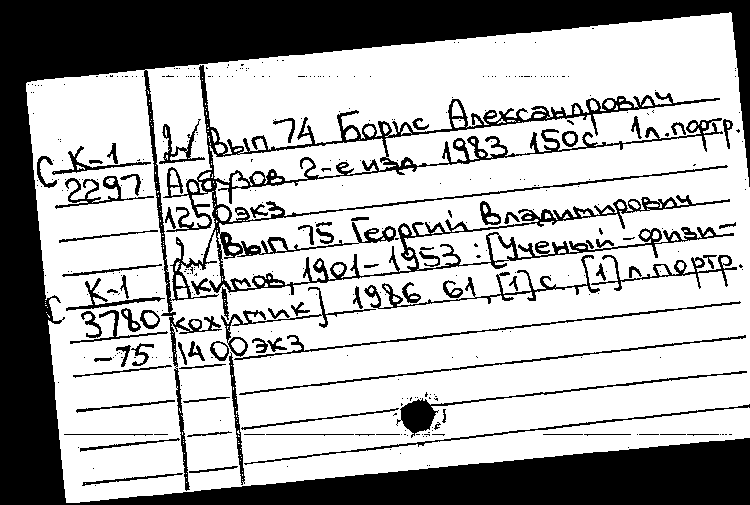 С К-1 2√ Вып. 74 Борис Александрович
2297 Арбузов. 2-е изд. 1983. 150с., 1л.портр.
1250экз.
2√ Вып. 75. Георгий Владимирович
С К-1 Акимов, 1901-1953 : [Ученый-физи-
3780 кохимик] 1986. 61, [1]с., [1]л.портр.
-75 1400экз